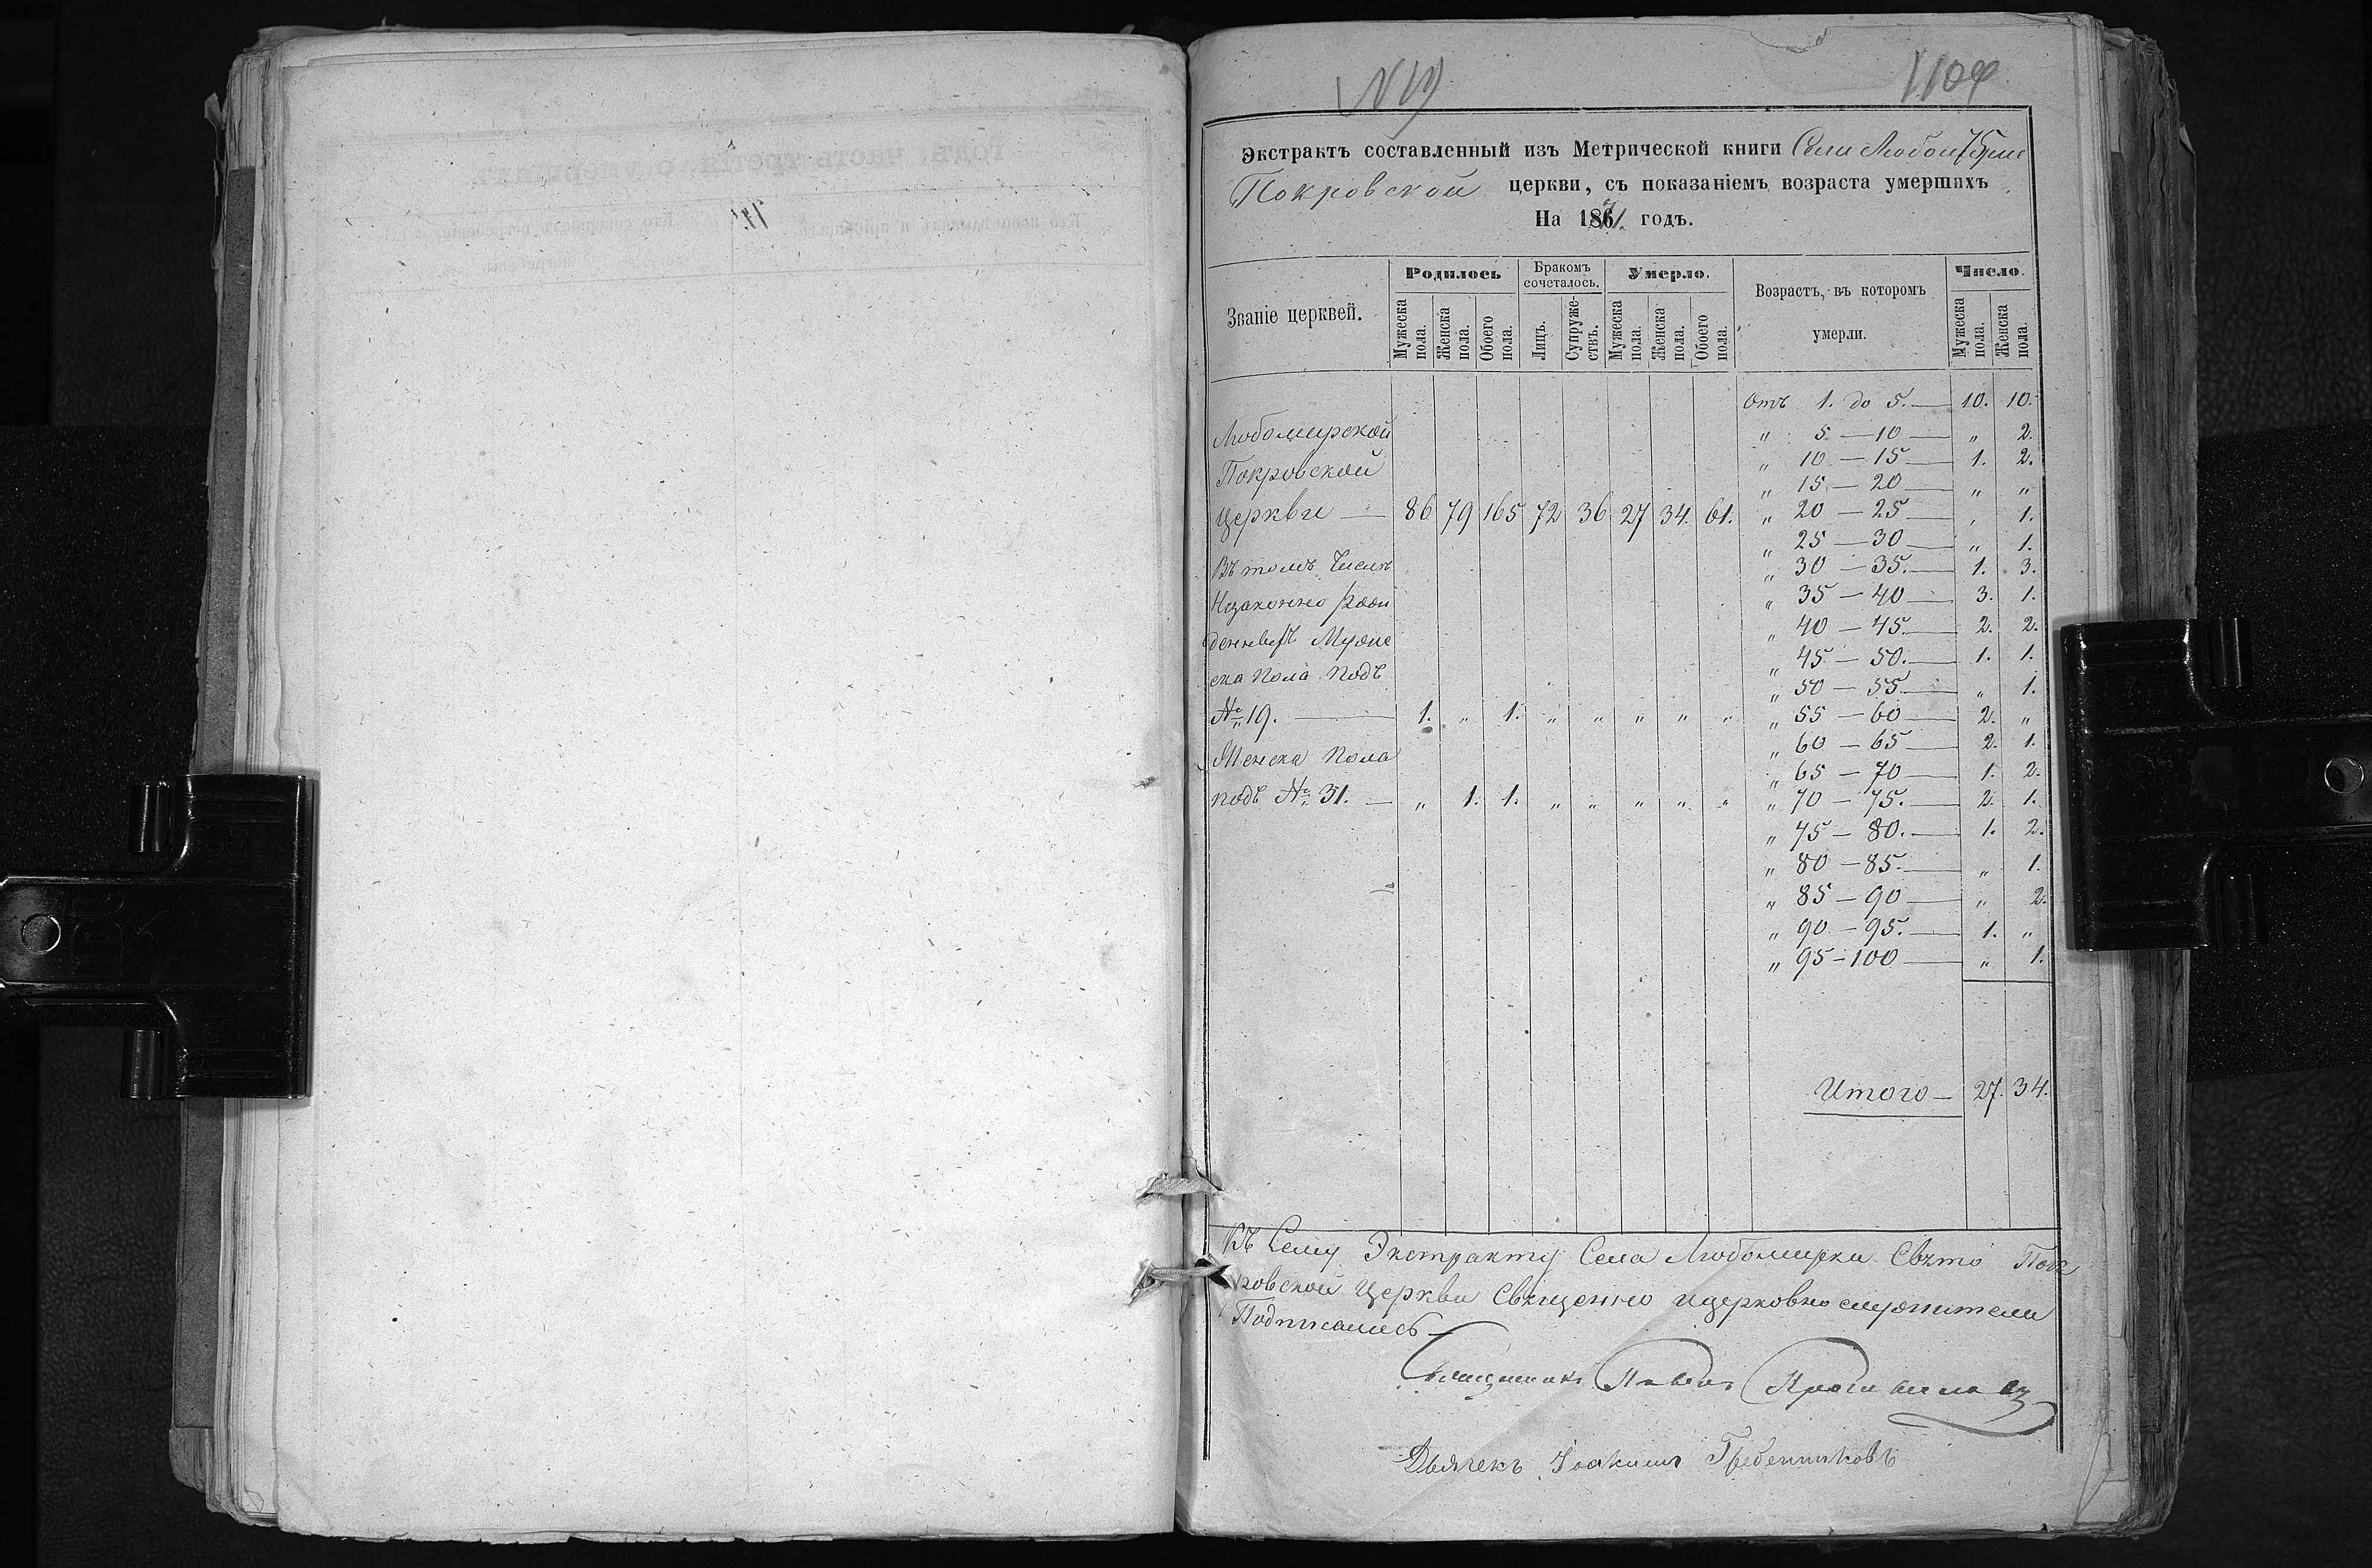 N 19
Экстрактъ составленный изъ Метрической книги Села Любомирки
Покровской церкви, съ показаніемъ возраста умершихъ
На 1871. годъ.
Званіе церквей. Родилось Бракомъ сочеталось. Умерло. Возрастъ, въ которомъ умерли. Число.
Мужеска пола. Женска пола. Обоего пола. Лицъ. Супруже-ствъ. Мужеска пола. Женска пола. Обоего пола. Мужеска пола. Женска пола.
Отъ 1. до 5. — 10. 10.
Любомирской „ 5 — 10 — „ 2.
Покровской „ 10 — 15 — 1. 2.
„ 15 — 20 — „ „
Церкви — 86 79 165 72 36 27 34. 61. „ 20 — 25 — „ 1.
„ 25 — 30 — „ 1.
Въ томъ числѣ „ 30 — 35. — 1. 3.
Незаконно рож „ 35 — 40 — 3. 1.
денныхъ Муже „ 40 — 45. — 2. 2.
ска Пола подъ „ 45 — 50. — 1. 1.
„ 50 — 55. — „ 1.
№ 19. — 1. „ 1. „ „ „ „ „ „ 55 — 60 — 2. „
„ 60 — 65 — 2. 1.
Женска Пола „ 65 — 70 — 1. 2.
подъ № 31. — „ 1. 1. „ „ „ „ „ „ 70 — 75. — 2. 1.
„ 75 — 80. — 1. 2.
„ 80 — 85. — „ 1.
„ 85 — 90 — „ 2.
„ 90 — 95. — 1. „
„ 95 — 100 — „ 1.
Итого — 27. 34.
Къ Сему Экстракту Села Любомирки Свято Пок
ровской Церкви Священно и церковно служители
Подписались —
Священникъ Павелъ
Дьячекъ Іоакимъ Гребенниковъ